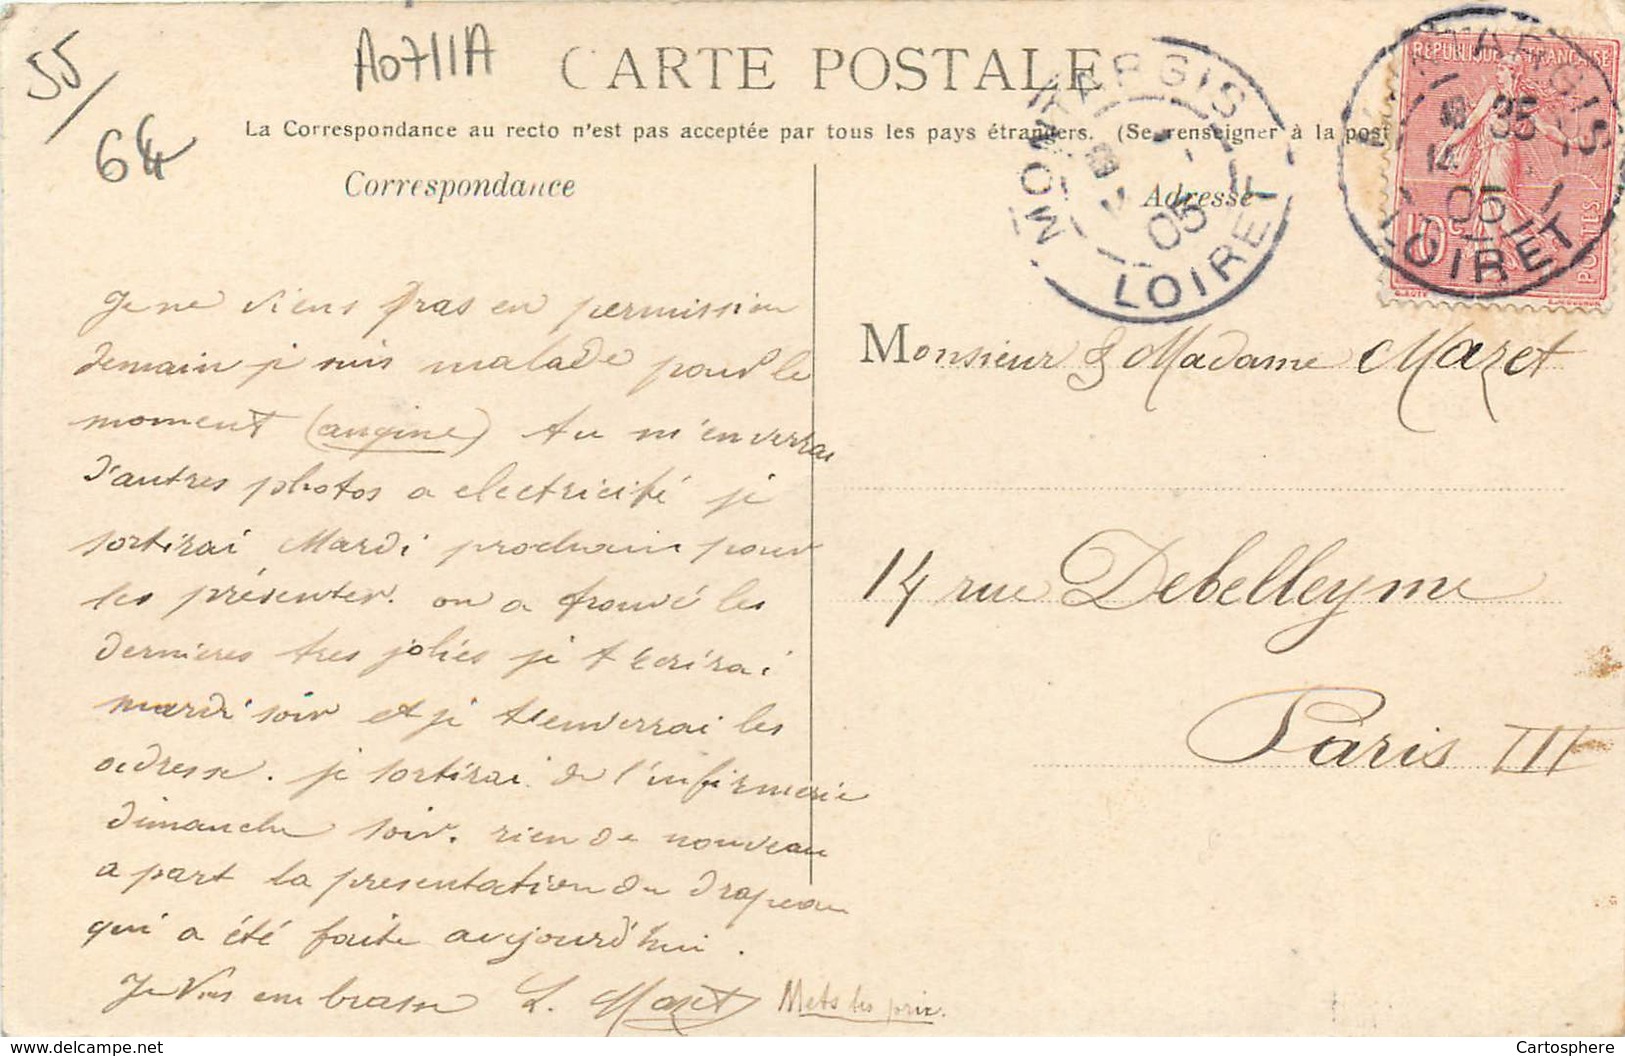 55/
6€
A0711A
CARTE POSTALE
La Correspondance au recto n'est pas acceptée par tous les pays étrangers. (Se renseigner à la post
Correspondance
Adresse
MONTARGIS
05
LOIRET
RÉPUBLIQUE FRANÇAISE
10c
POSTES
MONTARGIS
35
14
05
LOIRET
Je ne viens pas en permission
demain je suis malade pour le
moment (angine) tu m'enverras
d'autres photos a electricité je
sortirai Mardi prochain pour
les présenter. on a trouvé les
dernieres tres jolies je t'ecrirai
mardi soir et je t'enverrai les
adresse. je sortirai de l'infirmerie
dimanche soir. rien de nouveau
a part la presentation du drapeau
qui a été faite aujourd'hui.
Je vous embrasse L. Mazet
Mets les prix.
Monsieur & Madame Mazet
14 rue Debelleyme
Paris III
delcampe.net
Cartosphere